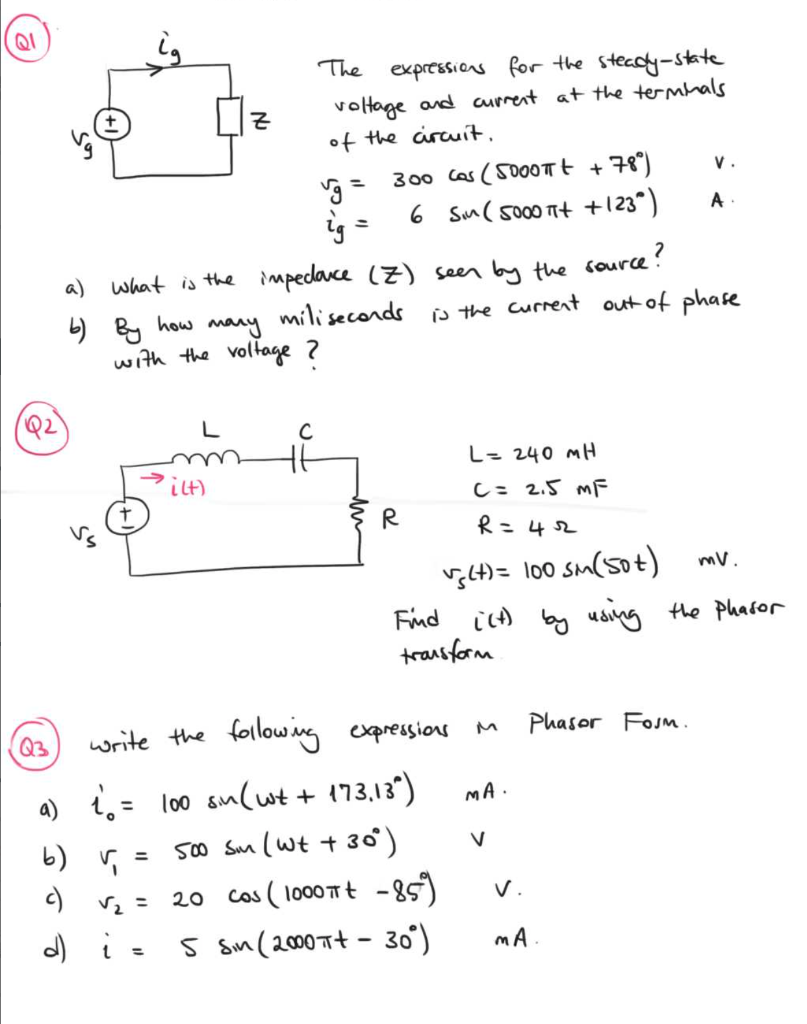 Q1
ig
vg
Z
The expressions for the steady-state
voltage and current at the terminals
of the circuit.
vg = 300 cos(5000πt + 78°) V.
ig = 6 sin(5000πt + 123°) A.
a) What is the impedance (Z) seen by the source?
b) By how many miliseconds is the current out of phase
with the voltage?
Q2
L
C
i(t)
R
vs
L = 240 mH
C = 2.5 mF
R = 4 Ω
vs(t) = 100 sin(50t) mV.
Find i(t) by using the phasor
transform
Q3
write the following expressions in Phasor Form.
a) i₀ = 100 sin(wt + 173.13°) mA.
b) v₁ = 500 sin(wt + 30°) V
c) v₂ = 20 cos(1000πt - 85°) V.
d) i = 5 sin(2000πt - 30°) mA.